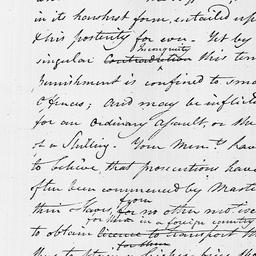 in its harshest form, entailed up
& his posterity for ever. Yet by
incongruity
singular contradiction this ten
punishment is confined to sma
offences; and may be inflicte
for an ordinary assault, or the
of a shilling. Your Mem.ts hav
to believe, that prosecutions have
often been commenced by Maste
their slaves, for no other motive
from
for them in a foreign country
to obtain licence to transport th
for them